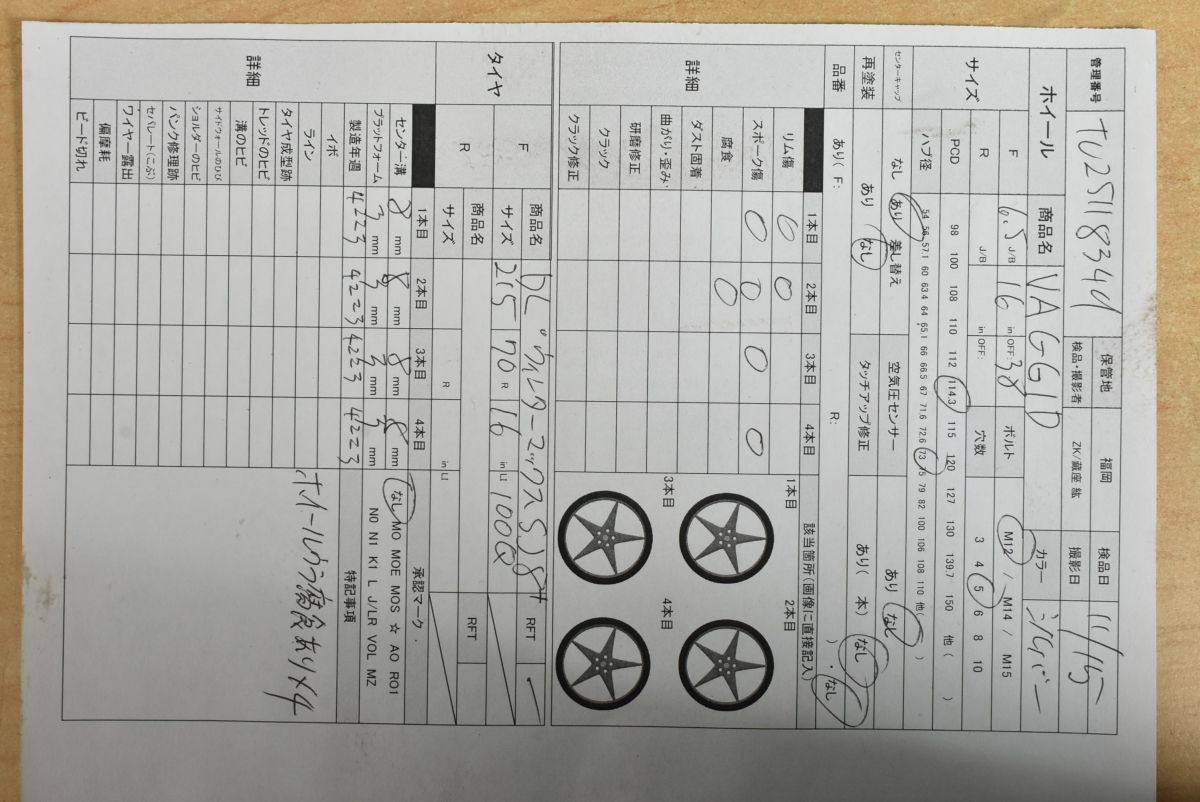 管理番号 TU25118349 保管地 福岡 検品日 11/15
検品・撮影者 ZK/蔵座 紘 撮影日
ホイール 商品名 VAGGIO カラー シルバー
サイズ F 6.5 J/B 16 in OFF: 38 ボルト M12 / M14 / M15
R J/B in OFF: 穴数 3 4 5 6 8 10
PCD 98 100 108 110 112 114.3 115 120 127 130 139.7 150 他( )
ハブ径 54 56 57.1 60 63.4 64 65.1 66 66.5 67 71.6 72.6 73 75 79 82 100 106 108 110 他( )
センターキャップ なし あり 差し替え 空気圧センサー あり なし
再塗装 あり なし タッチアップ修正 あり 本) なし
品番 あり( F: R: )・なし
詳細 1本目 2本目 3本目 4本目 該当箇所(画像に直接記入)
リム傷 0 0
スポーク傷 0 0 0 0
腐食 0
ダスト固着
曲がり・歪み
研磨修正
クラック
クラック修正
1本目 2本目
3本目 4本目
タイヤ F 商品名 DL ウィンターマックス RFT
サイズ 215 70 R 16 in LI 100Q
R 商品名 RFT
サイズ R in LI
詳細 1本目 2本目 3本目 4本目 承認マーク
センター溝 8 mm 8 mm 8 mm 8 mm なし MO MOE MOS ☆ AO RO1
プラットフォーム 3 mm 3 mm 3 mm 3 mm N0 N1 K1 L J/LR VOL MZ
製造年週 4223 4223 4223 4223 特記事項
イボ
ライン
タイヤ成型跡
トレッドのヒビ
溝のヒビ
サイドウォールのひび
ショルダーのヒビ
パンク修理跡
セパレート(こぶ)
ワイヤー露出
偏摩耗
ビード切れ
ホイールうら腐食あり×4